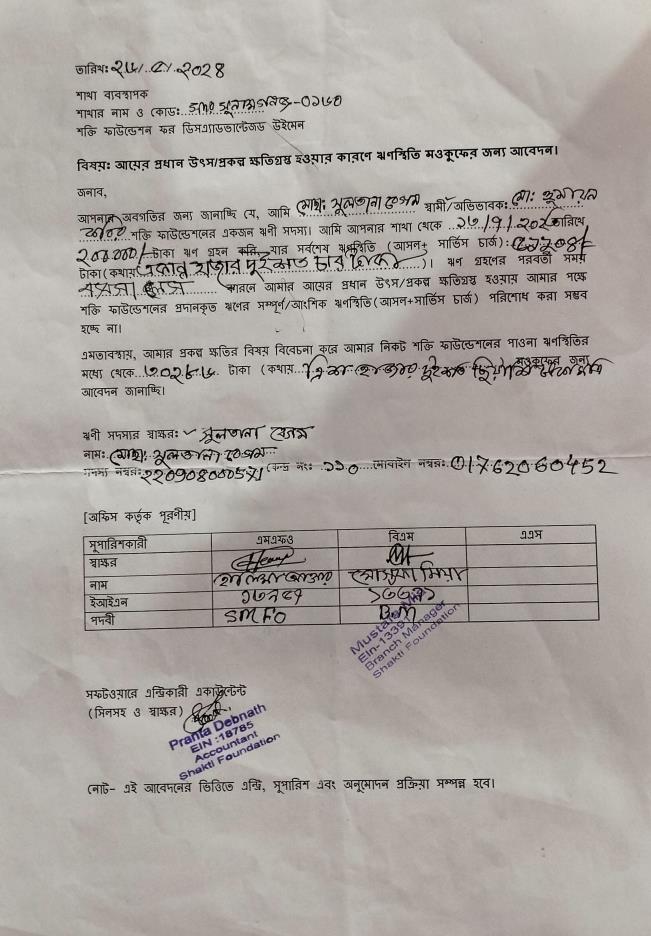 তারিখঃ
শাখা ব্যবস্থাপক
শাখার নাম ও কোডঃ SMO সুনামগঞ্জ-০১৬০
শক্তি ফাউন্ডেশন ফর ডিসএ্যাডভান্টেজড উইমেন
বিষয়ঃ আয়ের প্রধান উৎস/প্রকল্প ক্ষতিগ্রস্থ হওয়ার কারণে ঋণস্থিতি মওকুফের জন্য আবেদন।
জনাব,
আপনার অবগতির জন্য জানাচ্ছি যে, আমি মোছাঃ সুলতানা বেগম স্বামী/অভিভাবকঃ মোঃ হুমায়ুন
শক্তি ফাউন্ডেশনের একজন ঋণী সদস্য। আমি আপনার শাখা থেকে তারিখে
টাকা ঋণ গ্রহন করি যার সর্বশেষ ঋণস্থিতি (আসল+ সার্ভিস চার্জ)ঃ
টাকা(কথায় একান্ন হাজার দুইশত চার টাকা)। ঋণ গ্রহণের পরবর্তী সময়
কারনে আমার আয়ের প্রধান উৎস/প্রকল্প ক্ষতিগ্রস্থ হওয়ায় আমার পক্ষে
শক্তি ফাউন্ডেশনের প্রদানকৃত ঋণের সম্পূর্ণ/আংশিক ঋণস্থিতি(আসল+সার্ভিস চার্জ) পরিশোধ করা সম্ভব
হচ্ছে না।
এমতাবস্থায়, আমার প্রকল্প ক্ষতির বিষয় বিবেচনা করে আমার নিকট শক্তি ফাউন্ডেশনের পাওনা ঋণস্থিতির
মধ্যে থেকে টাকা (কথায় হাজার দুইশত মওকুফের জন্য
আবেদন জানাচ্ছি।
ঋণী সদস্যর স্বাক্ষরঃ সুলতানা বেগম
নামঃ মোছাঃ সুলতানা বেগম
সদস্য নম্বরঃ 22090800057১ কেন্দ্র নংঃ ১১০ মোবাইল নম্বরঃ 01762060452
[অফিস কর্তৃক পূরণীয়]
সুপারিশকারী এমএফও বিএম এএস
স্বাক্ষর
নাম মোস্তফা মিয়া
ইআইএন
পদবী SMFO BM
Mustafa Mia
Branch Manager
Shakti Foundation
সফটওয়ারে এন্ট্রিকারী একাউন্টেন্ট
(সিলসহ ও স্বাক্ষর)
Pranta Debnath
EIN :18785
Accountant
Shakti Foundation
নোট- এই আবেদনের ভিত্তিতে এন্ট্রি, সুপারিশ এবং অনুমোদন প্রক্রিয়া সম্পন্ন হবে।